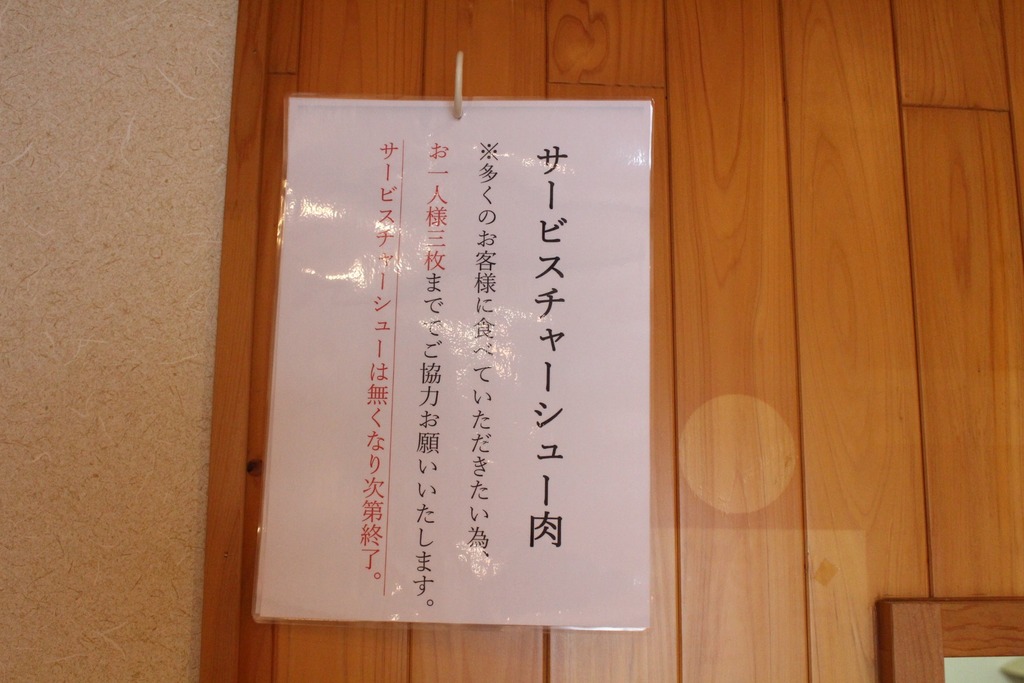 サービスチャーシュー肉
※多くのお客様に食べていただきたい為、
お一人様三枚まででご協力お願いいたします。
サービスチャーシューは無くなり次第終了。